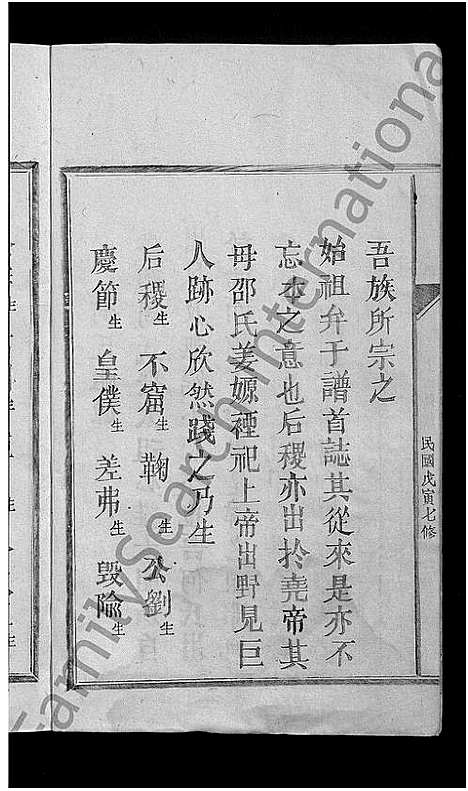 吾族所宗之
始祖弁于譜首誌其從來是亦不
忘本之意也后稷亦出於堯帝其
母邵氏姜嫄禋祀上帝出野見巨
人跡心欣然踐之乃生
后稷生 不窋生 鞠生 公劉生
慶節生 皇僕生 差弗生 毁隃生
民國戊寅七修
FamilySearch International